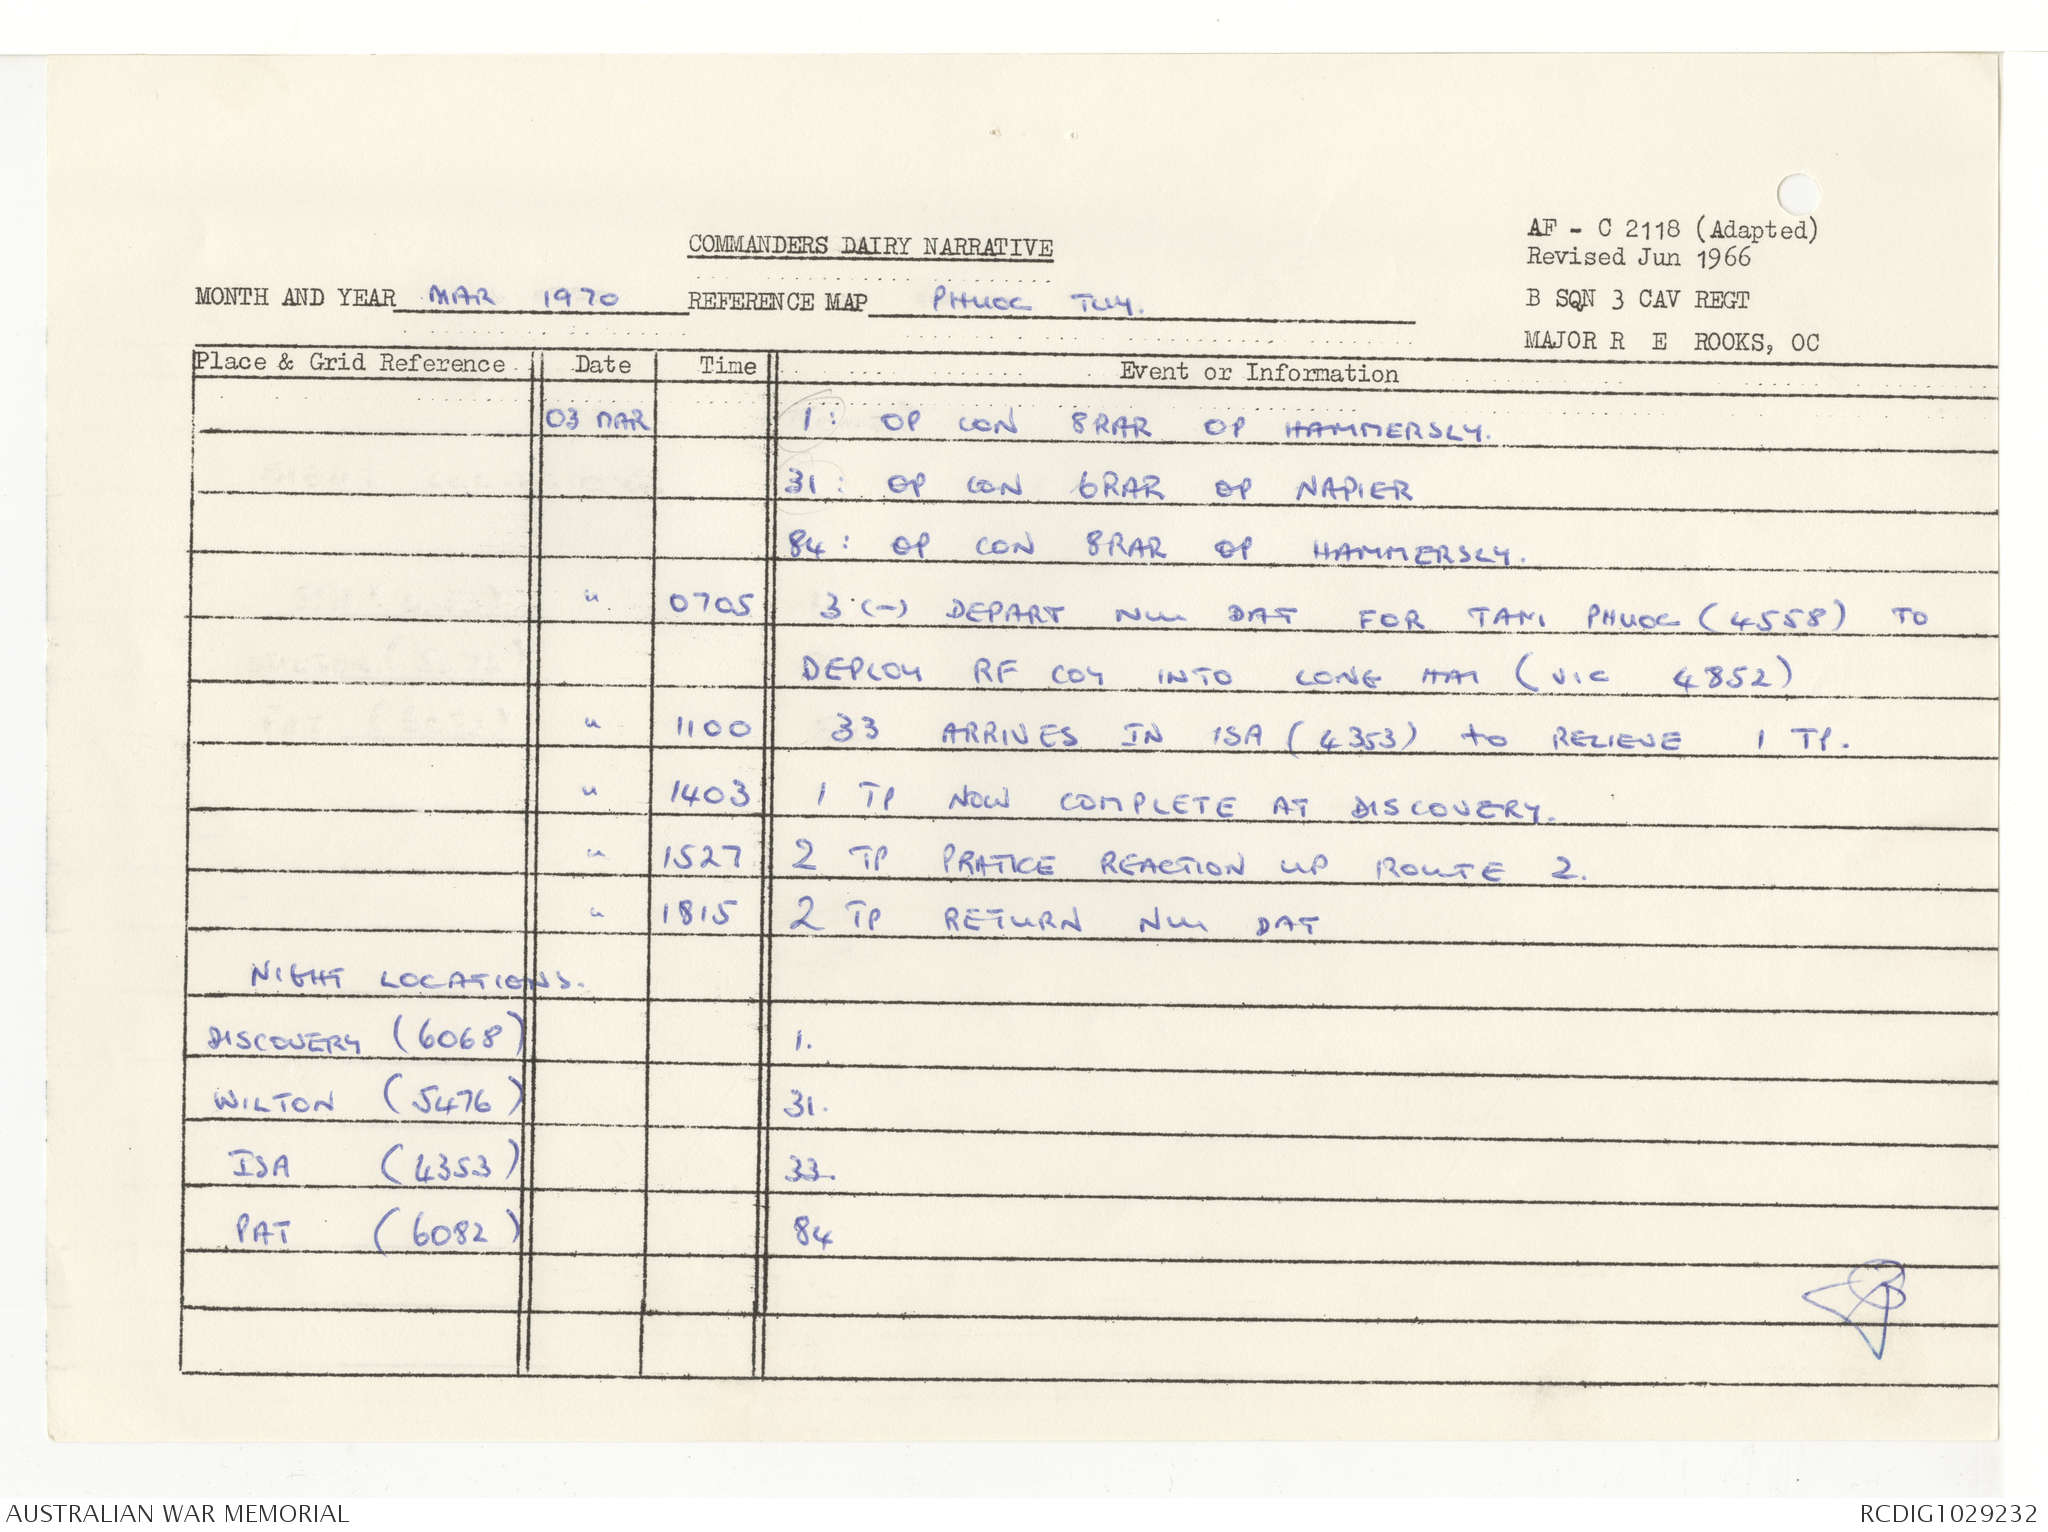 AF - C 2118 (Adapted)
COMMANDERS DAIRY NARRATIVE
Revised Jun 1966
MONTH AND YEAR MAR 1970 REFERENCE MAP PHUOC TUY.
B SQN 3 CAV REGT
MAJOR R E ROOKS, OC
Place & Grid Reference Date Time Event or Information
03 MAR 1: OP CON 8RAR OP HAMMERSLY.
31: OP CON 6RAR OP NAPIER
84: OP CON 8RAR OP HAMMERSLY.
" 0705 3 (-) DEPART NUI DAT FOR TAM PHUOC (4558) TO
DEPLOY RF COY INTO LONG HAI (VIC 4852)
" 1100 33 ARRIVES IN ISA (4353) to RELIEVE 1 TP.
" 1403 1 TP NOW COMPLETE AT DISCOVERY.
" 1527 2 TP PRATICE REACTION UP ROUTE 2.
" 1815 2 TP RETURN NUI DAT
NIGHT LOCATIONS.
DISCOVERY (6068) 1.
WILTON (5476) 31.
ISA (4353) 33.
PAT (6082) 84
AUSTRALIAN WAR MEMORIAL
RCDIG1029232